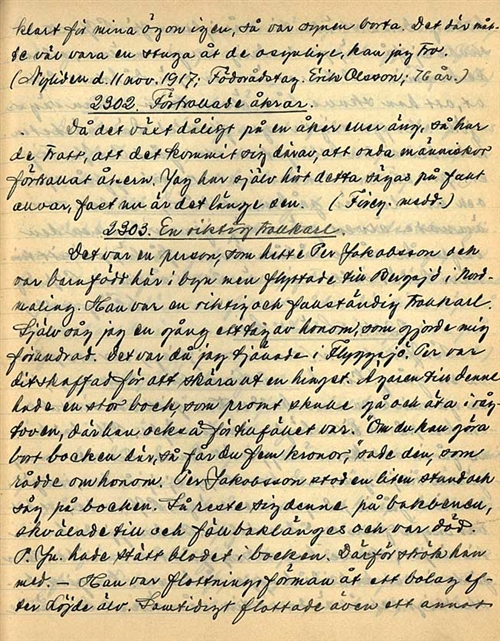 klart för mina ögon igen, så var synen borta. Det där mås-
te väl vara en stuga åt de osynliga, kan jag tro.
(Nyliden d. 11 nov. 1917; Födorådstag. Erik Olsson; 76 år.)
2302. Förtrollade åkrar.
Då det växt dåligt på en åker eller äng, så har
de trott, att det kommit sig därav, att onda människor
förtrollat åkern. Jag har själv hört detta sägas på fullt
allvar, fast nu är det länge sen. (Föreg. medd.)
2303. En riktig trollkarl.
Det var en person, som hette Per Jakobsson och
var barnfödd här i byn men flyttade till Bergsjö i Nord-
maling. Han var en riktig och fullständig trollkarl.
Själv såg jag en gång ett tag av honom, som gjorde mig
förundrad. Det var då jag tjänade i Flyggsjö. Per var
ditskaffad för att skära ut en hingst. Ägaren till denne
hade en stor bock, som promt skulle gå och äta i råg-
toven, där han också för tillfället var. "Om du kan göra
bort bocken där, så får du fem kronor," sade den, som
rådde om honom. Per Jakobsson stod en liten stund och
såg på bocken. Så reste sig denne på bakbenen,
skvälade till och föll baklänges och var död.
P. Ja. hade stått blodet i bocken. Därför strök han
med. — Han var flottningsförman åt ett bolag ef-
ter Löjde älv. Samtidigt flottade även ett annat